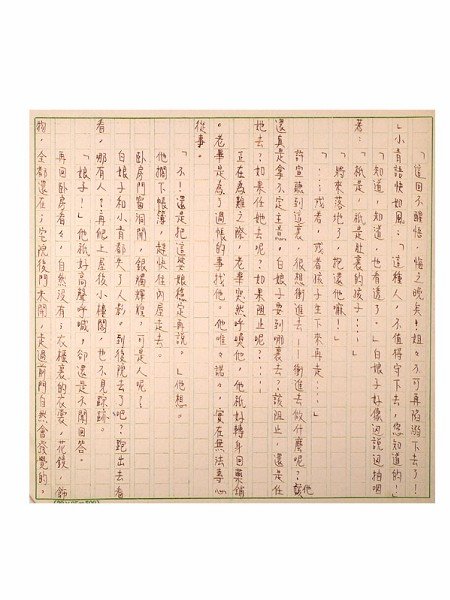 「這回不醒悟，悔之晚矣！姐々不可再陷溺下去了！
」小青語快如風：「這種人，不值得守下去，您知道的！」
「知道，知道，也有遺了。」白娘子好像邊說邊拍咽
著：「祇是，祇是肚裏的孩子……」
「將來落地了，把還他嘛！」
「……或者，或者孩子生下來再走……」
許宣聽到這裏，很想衝進去——衝進去做什麼呢？說他
還真是拿不定主意。白娘子要到哪裏去？該阻止，還是任
她去？如果任她去呢？如果阻止呢？……
正在為難之際，老畢突然呼喚他，他祇好轉身回藥鋪
。老畢是為了過帳的事找他。他唯々諾々，實在無法專心
從事。
「不！還是把這婆娘穩定再說。」他想。
他擱下帳簿，趕快往內屋走去。
臥房門窗洞開，銀燭輝煌，可是人呢？
白娘子和小青都失了人影。到後院去了吧？跑出去看
看，哪有人？再爬上屋後小樓閣，也不見蹤跡。
「娘子！」他祇好高聲呼喊，卻還是不聞回答。
再回臥房看々，自然沒有；衣櫃裏的衣裳，花鏡，飾
物，全都還在；宅院後門未開，走過前門自然會發覺的，